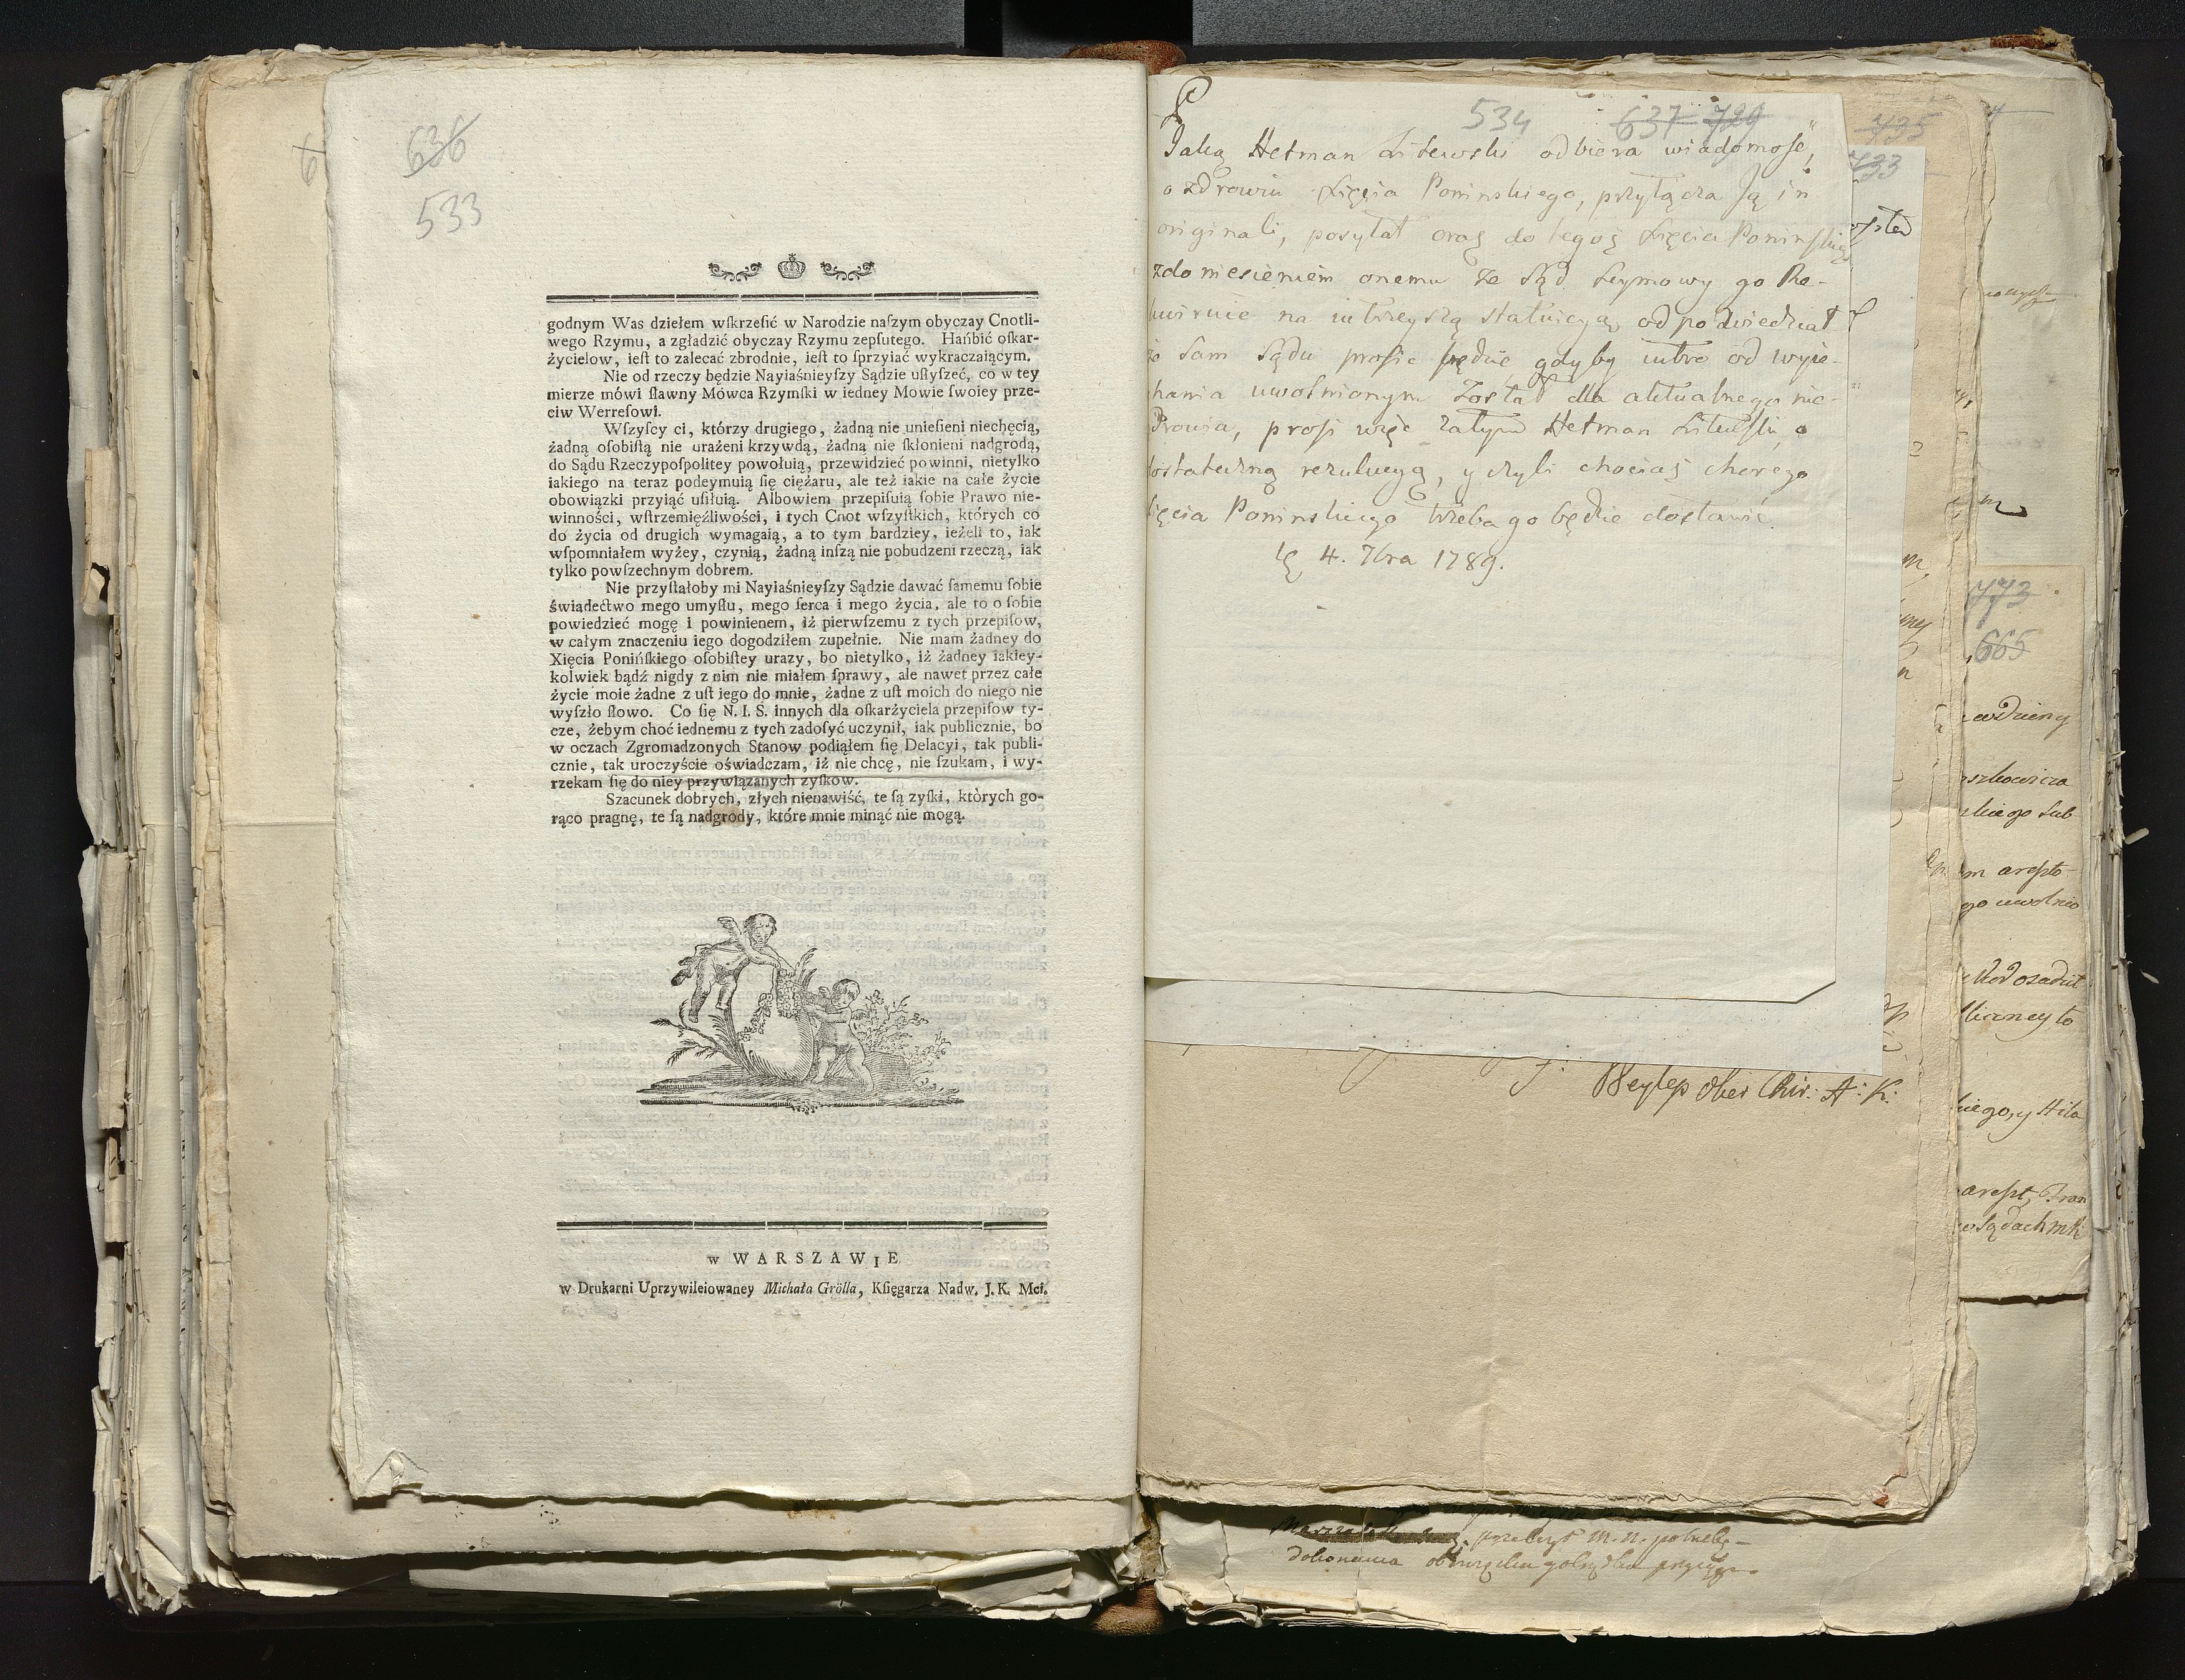 636
533
godnym Was dziełem wſkrzeſić w Narodzie naſzym obyczay Cnotli-
wego Rzymu, a zgładzić obyczay Rzymu zepſutego. Hańbić oſkar-
życielow, ieſt to zalecać zbrodnie, ieſt to ſprzyiać wykraczaiącym.
Nie od rzeczy będzie Nayiaśnieyſzy Sądzie uſłyſzeć, co w tey
mierze mówi ſławny Mówca Rzymſki w iedney Mowie ſwoiey prze-
ciw Werreſowi.
Wſzyſcy ci, którzy drugiego, żadną nie unieſieni niechęcią,
żadną oſobiſtą nie urażeni krzywdą, żadną nie ſkłonieni nadgrodą,
do Sądu Rzeczypoſpolitey powołuią, przewidzieć powinni, nietylko
iakiego na teraz podeymuią ſię ciężaru, ale też iakie na całe życie
obowiązki przyiąć uſiłuią. Albowiem przepiſuią ſobie Prawo nie-
winności, wſtrzemięźliwości, i tych Cnot wſzyſtkich, których co
do życia od drugich wymagaią, a to tym bardziey, ieżeli to, iak
wſpomniałem wyżey, czynią, żadną inſzą nie pobudzeni rzeczą, iak
tylko powſzechnym dobrem.
Nie przyſtałoby mi Nayiaśnieyſzy Sądzie dawać ſamemu ſobie
świadectwo mego umyſłu, mego ſerca i mego życia, ale to o ſobie
powiedzieć mogę i powinienem, iż pierwſzemu z tych przepiſow,
w całym znaczeniu iego dogodziłem zupełnie. Nie mam żadney do
Xięcia Ponińſkiego oſobiſtey urazy, bo nietylko, iż żadney iakiey-
kolwiek bądź nigdy z nim nie miałem ſprawy, ale nawet przez całe
życie moie żadne z uſt iego do mnie, żadne z uſt moich do niego nie
wyſzło ſłowo. Co ſię N. I. S. innych dla oſkarżyciela przepiſow ty-
cze, żebym choć iednemu z tych zadoſyć uczynił, iak publicznie, bo
w oczach Zgromadzonych Stanow podiąłem ſię Delacyi, tak publi-
cznie, tak uroczyście oświadczam, iż nie chcę, nie ſzukam, i wy-
rzekam ſię do niey przywiązanych zyſkow.
Szacunek dobrych, złych nienawiść, te ſą zyſki, których go-
rąco pragnę, te ſą nadgrody, które mnie minąć nie mogą.
w WARSZAWIE
w Drukarni Uprzywileiowaney Michała Grölla, Kſięgarza Nadw. J. K. Mci.
534 637 729
Jaką Hetman Litewski odbiera wiadomość,
o zdrowiu Xięcia Poninskiego, przyłącza Ją in
originali, posyłał oraz do tegoż Xięcia Poninskie
zdoniesieniem onemu że Sąd Seymowy go Re-
kwiruie na iutrzeyszą statuicyą, odpowiedział
że Sam Sądu prosic będzie gdyby iutro od wyie-
chania uwolnionym został dla aktualnego nie-
zdrowia, prosi więc zatym Hetman Litewski o
dostateczną rezulucyą, y czyli chociaż chorego
Xięcia Poninskiego trzeba go będzie dostawić.
4. 7bra 1789.
735
733
773
665
Ober Chir: A: K:
arest
go uwolnio